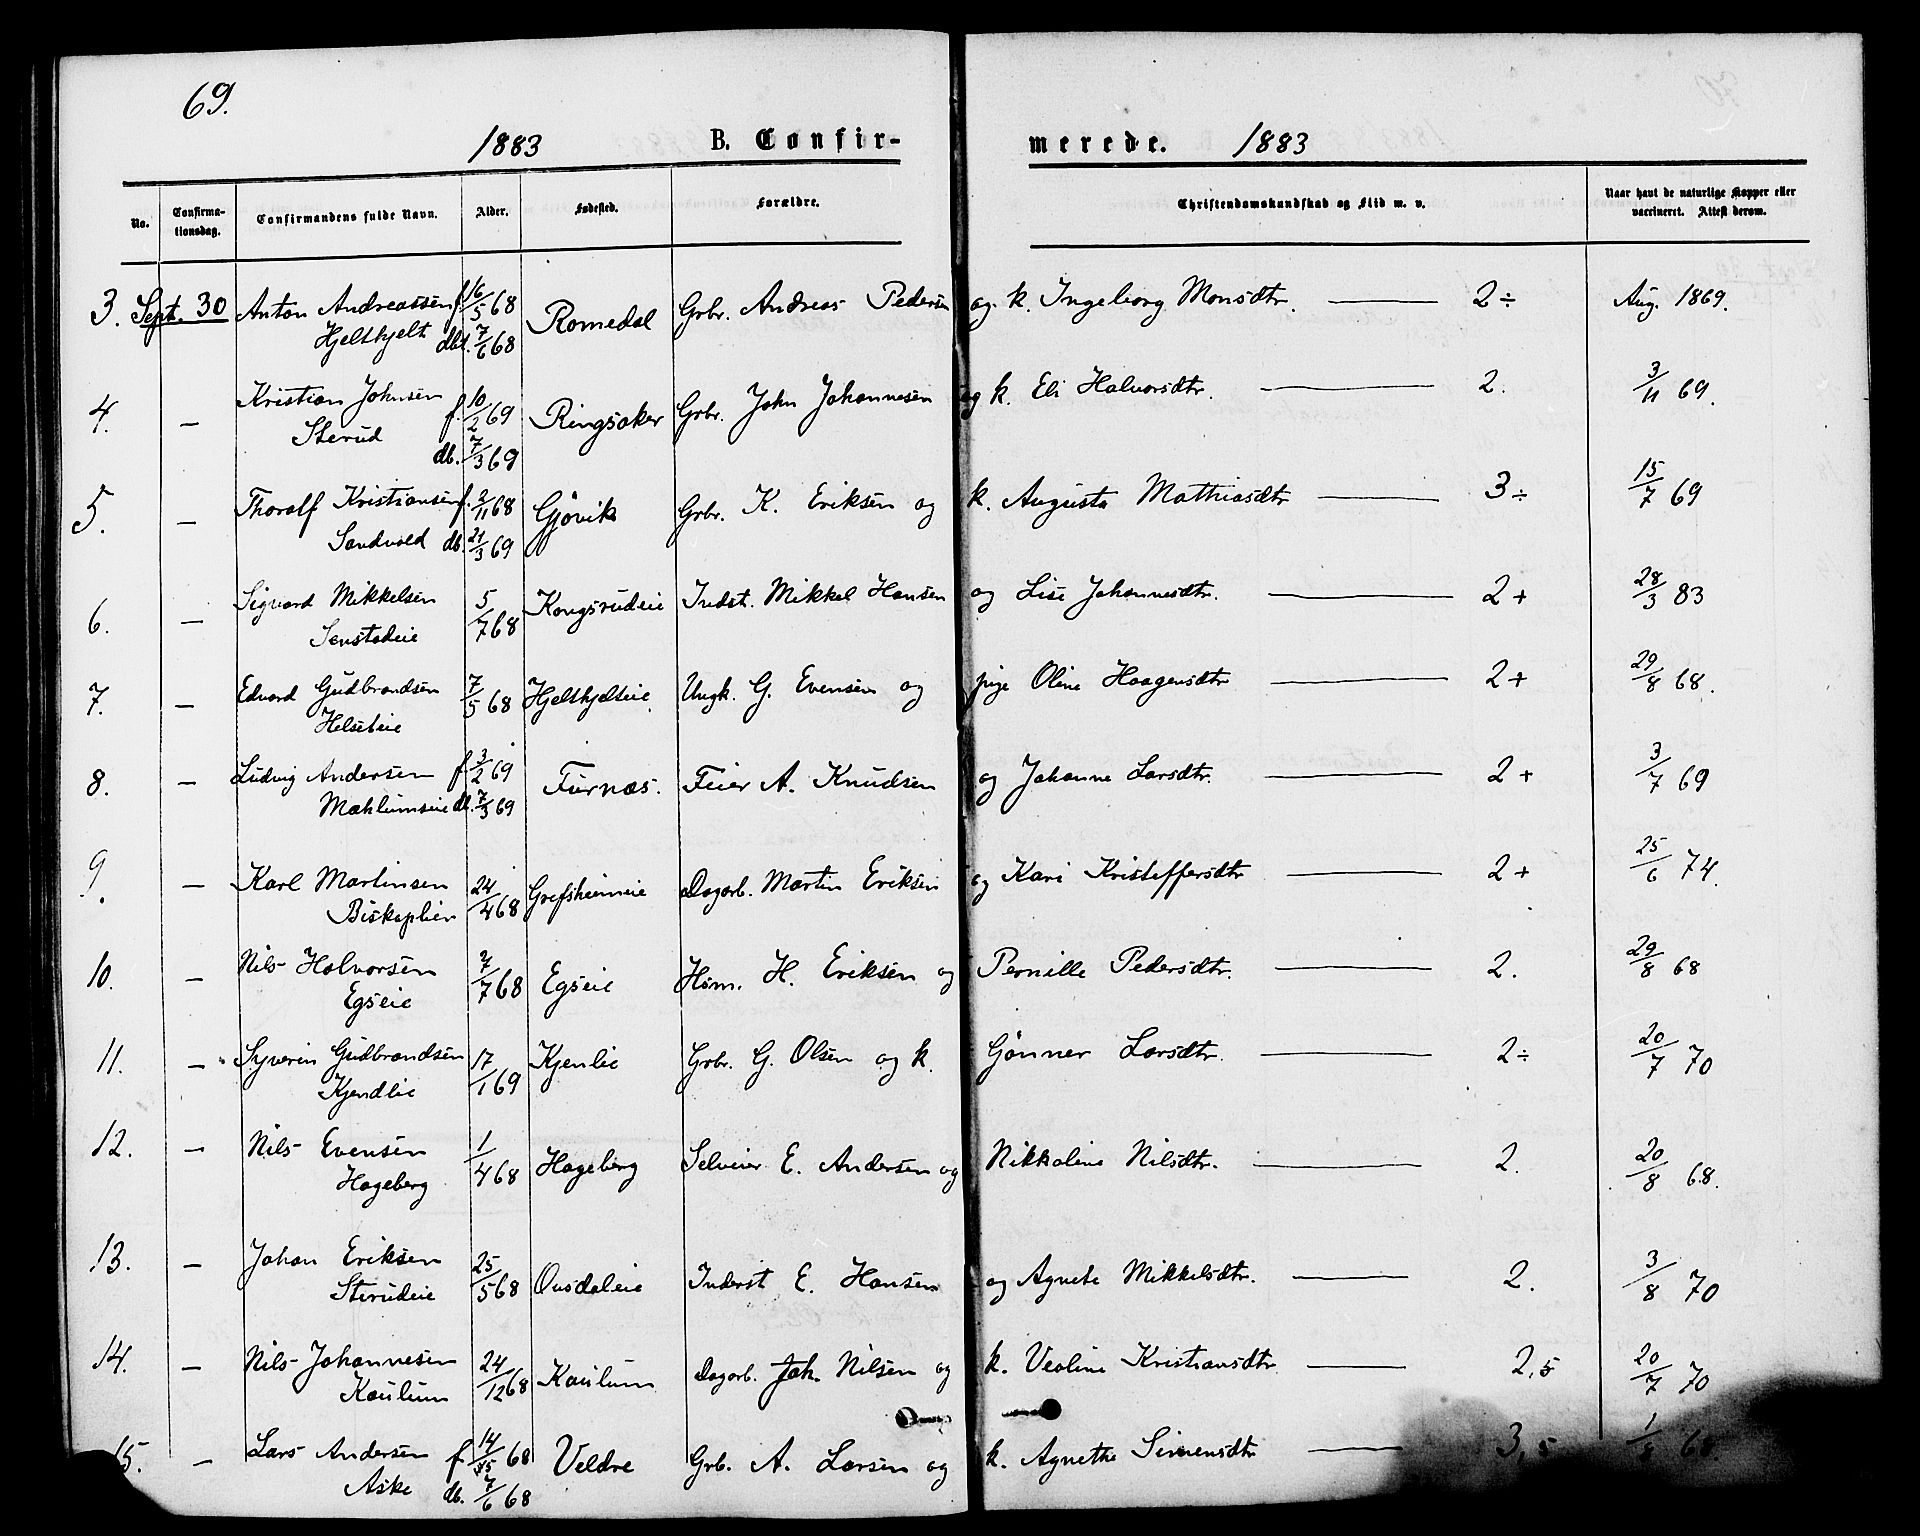 69.
1883 B. Confir- merede. 1883
No. Confirma-tionsdag. Confirmandens fulde Navn. Alder. Fødested. Forældre. Christendomskundskab og Flid m. v. Naar havt de naturlige Kopper eller vaccineret. Attest derom.
3. Sept. 30 Anton Andreassen f. 16/5 68 Romedal Grbr. Andreas Pedersen og k. Ingeborg Monsdtr. 2 ÷ Aug. 1869.
Hjelskjelt dbt. 7/6 68
4. — Kristian Johnsen f. 10/2 69 Ringsaker Grbr. John Johannesen og k. Eli Halvorsdtr. 2. 3/11 69.
Sterud db. 7/3 69
5. — Thoralf Kristiansen f. 2/11 68 Gjøvik Grbr. K. Eriksen og k. Augusta Mathiasdtr 3 ÷ 15/7 69
Sandvold db. 21/3 69
6. — Sigvard Mikkelsen 5/7 68 Kongsrudeie Indst. Mikkel Hansen og Lise Johannesdtr. 2 + 28/3 83
Senstadeie
7. — Edvard Gudbrandsen 7/5 68 Hjelskjelseie Ungk. G. Evensen og pige Oline Haagensdtr 2 + 29/8 68.
Helseteie
8. — Ludvig Andersen f. 3/2 69 Furnæs. Feier A. Knudsen og Johanne Larsdtr. 2 + 3/7 69
Mæhlumseie db. 7/3 69
9. — Karl Martinsen 24/4 68 Grefsheimeie Dagarb. Martin Eriksen og Kari Kristoffersdtr 2 + 25/6 74.
Biskoplien
10. — Nils Halvorsen 7/7 68 Egseie Hsm. H. Eriksen og Pernille Pedersdtr. 2. 29/8 68
Egseie
11. — Syverin Gudbrandsen 17/1 69 Kjenlie Grbr. G. Olsen og k. Gønner Larsdtr. 2 ÷ 20/7 70
Kjendlie
12. — Nils Evensen 1/4 68 Hageberg Selveier E. Andersen og Nikkoline Nilsdtr. 2. 20/8 68.
Hageberg
13. — Johan Eriksen 25/5 68 Ousdaleie Inderst E. Hansen og Agnete Mikkelsdtr. 2. 3/8 70
Sterudeie
14. — Nils Johannesen 24/12 68 Kaulum Dagarb. Joh. Nilsen og k. Veoline Kristiansdtr 2,5 20/7 70
Kaulum
15. — Lars Andersen f. 14/5 68 Veldre Grb. A. Larsen og k. Agnethe Simensdtr 3,5 1/8 68.
Aske db. 7/6 68